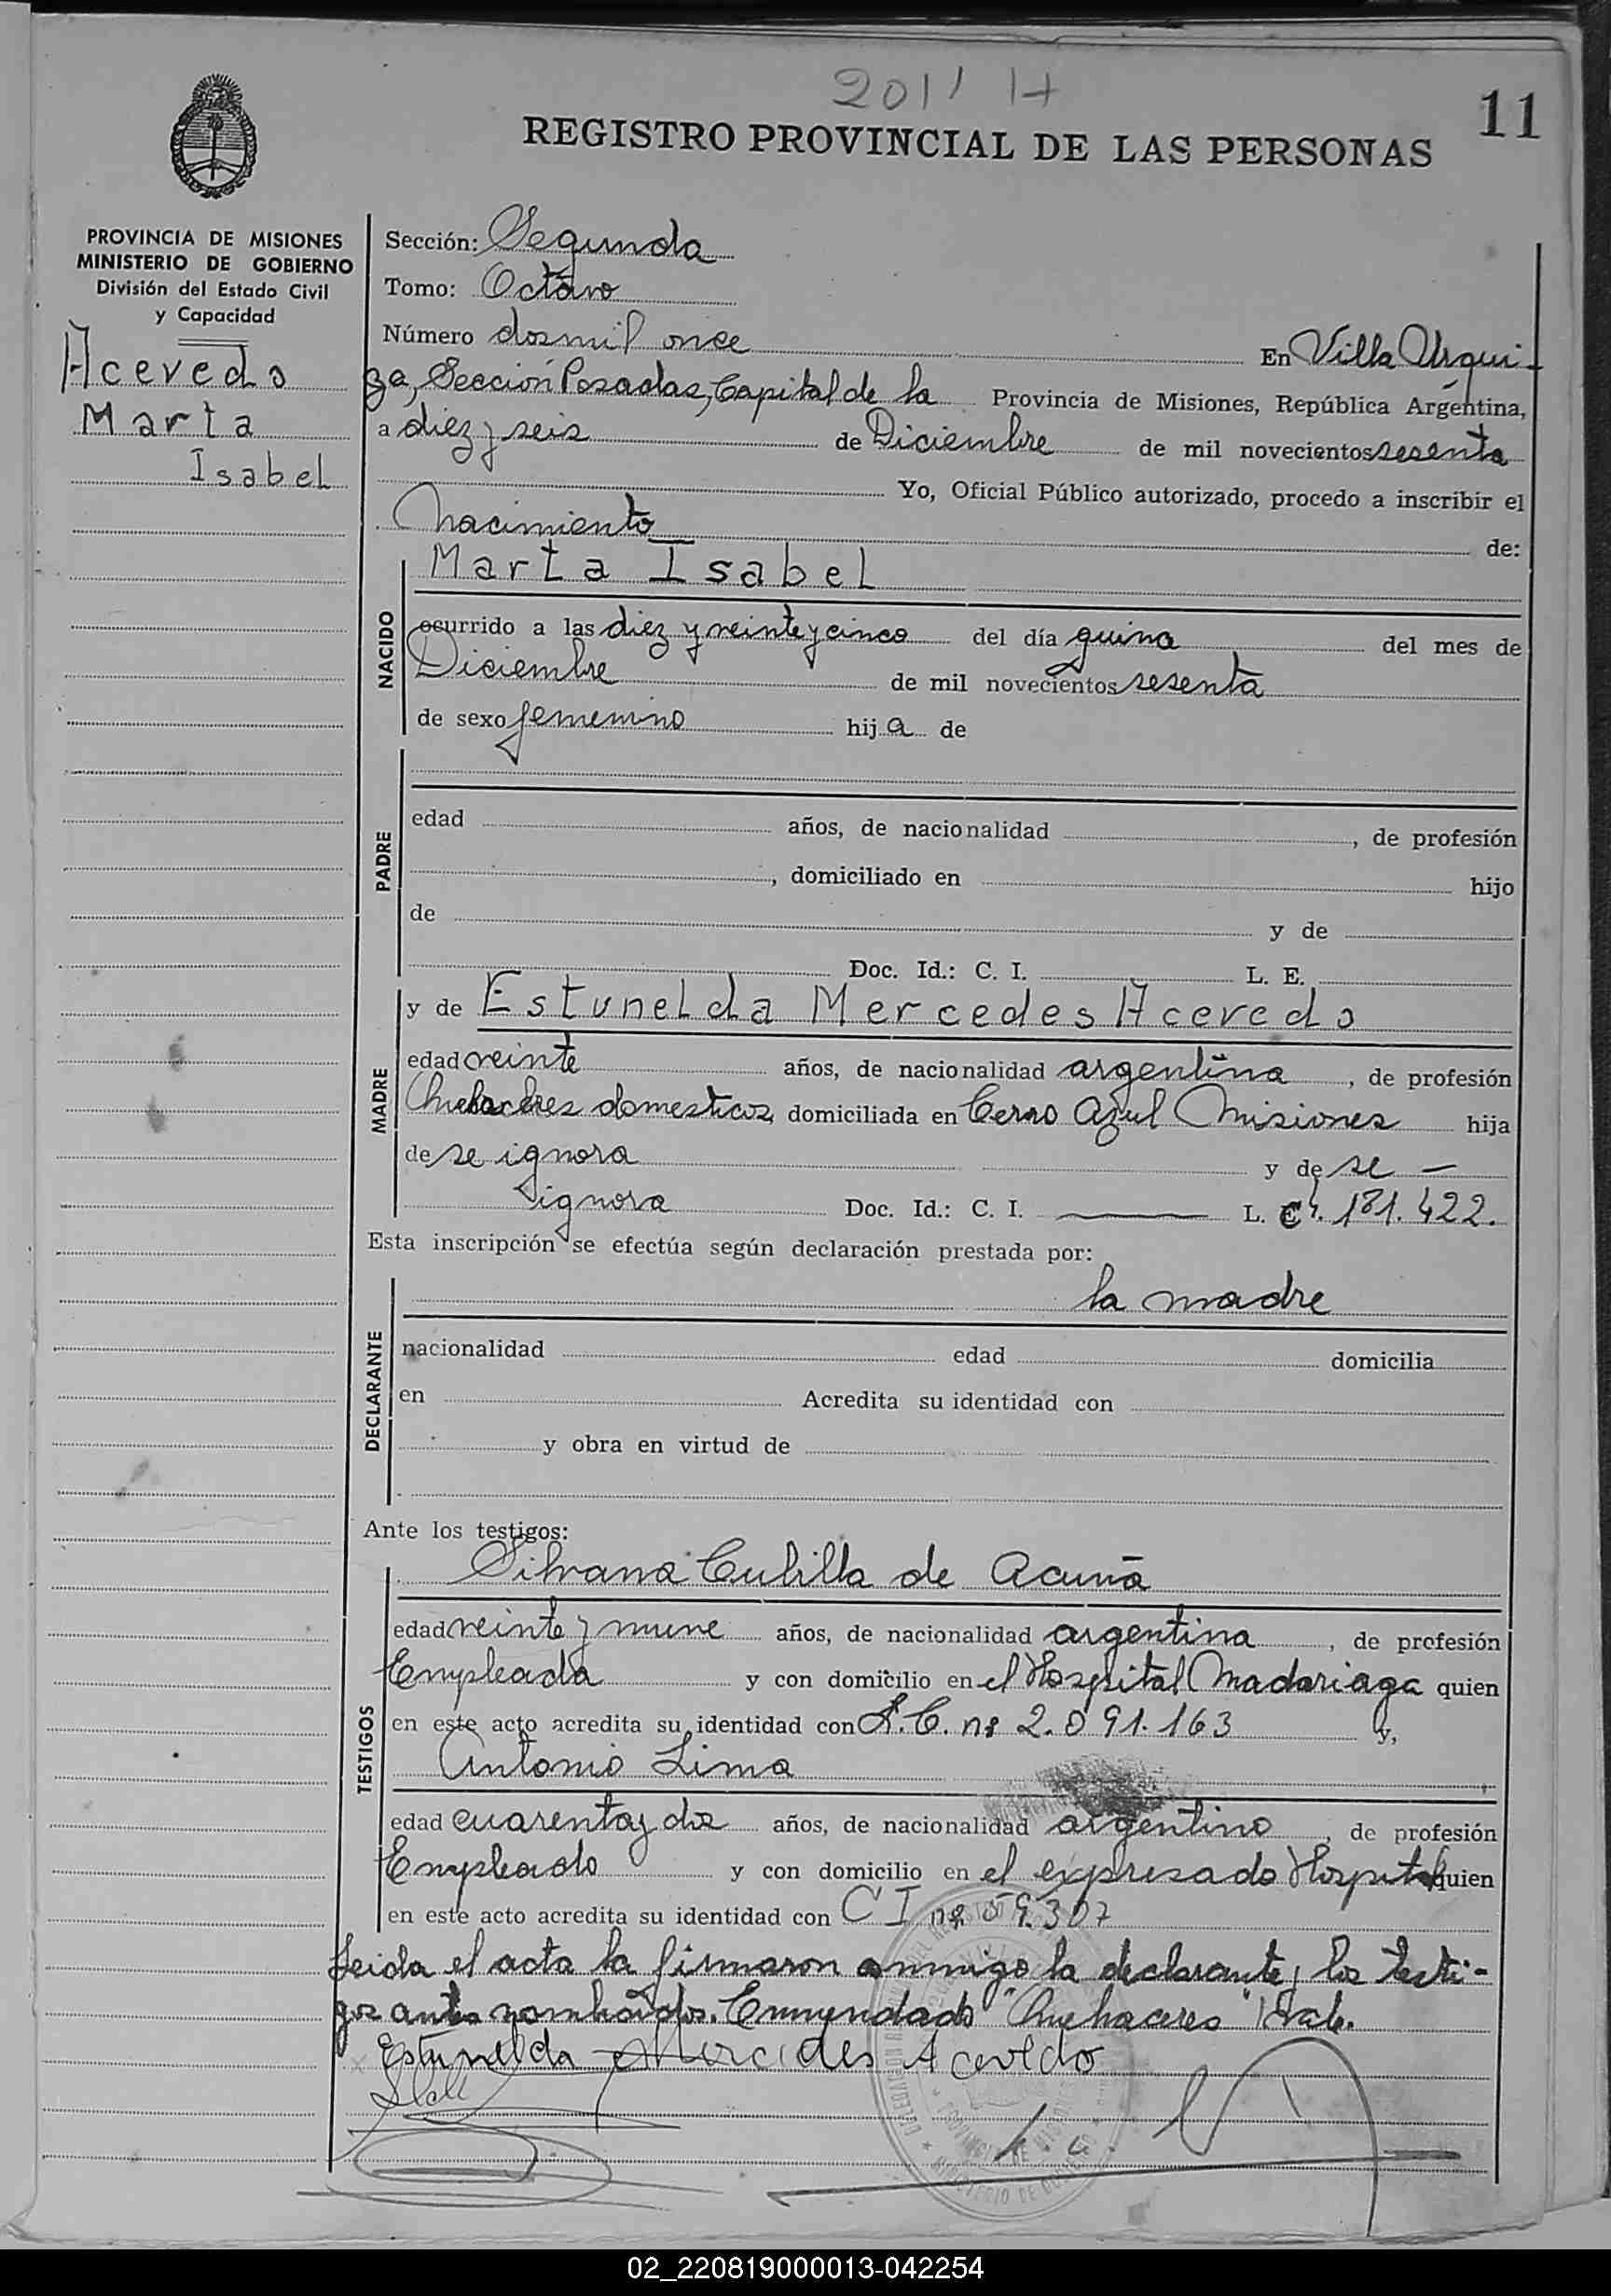 2011 H
11
REGISTRO PROVINCIAL DE LAS PERSONAS
PROVINCIA DE MISIONES
MINISTERIO DE GOBIERNO
División del Estado Civil
y Capacidad
Acevedo
Marta
Isabel
Sección: Segunda
Tomo: Octavo
Número dosmil once En Villa Urqui-
za, Sección Posadas, Capital de la Provincia de Misiones, República Argentina,
a diez y seis de Diciembre de mil novecientos sesenta
Yo, Oficial Público autorizado, procedo a inscribir el
Nacimiento de:
NACIDO
Marta Isabel
ocurrido a las diez y veinte y cinco del día quince del mes de
Diciembre de mil novecientos sesenta
de sexo femenino hija de
PADRE
edad años, de nacionalidad , de profesión
, domiciliado en hijo
de y de
Doc. Id.: C. I. L. E.
MADRE
y de Estunelda Mercedes Acevedo
edad veinte años, de nacionalidad argentina , de profesión
Quehaceres domesticos, domiciliada en Cerro Azul Misiones hija
de se ignora y de se —
ignora Doc. Id.: C. I. —— L. C 4.181.422.
Esta inscripción se efectúa según declaración prestada por:
DECLARANTE
la madre
nacionalidad edad domicilia
en Acredita su identidad con
y obra en virtud de
Ante los testigos:
TESTIGOS
Silvana Cubilla de Acuña
edad veinte y nueve años, de nacionalidad argentina , de profesión
Empleada y con domicilio en el Hospital Madariaga quien
en este acto acredita su identidad con L.C. nº 2.091.163 y,
Antonio Lima
edad cuarenta y dos años, de nacionalidad argentino , de profesión
Empleado y con domicilio en el expresado Hospital quien
en este acto acredita su identidad con C I nº 59.307
Leida el acta la firmaron conmigo la declarante y los testi-
gos antes nombrados. Enmendado "Quehaceres" Vale.
Estunelda Mercedes Acevedo
02_220819000013-042254